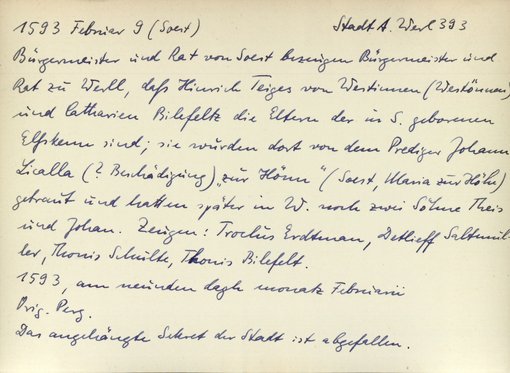 1593 Februar 9 (Soest) Stadt A. Werl 393
Bürgermeister und Rat von Soest bezeugen Bürgermeister und
Rat zu Werll, daß Hinrich Teiges von Westinnen (Westönnen)
und Catharien Bilefeltz die Eltern der in S. geborenen
Elfskenn sind; sie wurden dort von dem Prediger Johann
Licalla (? Beschädigung) „zur Hönn" (Soest, Maria zur Höh)
getraut und hatten später in W. noch zwei Söhne Theis
und Johan. Zeugen: Troelus Erdtman, Detlieff Saltmül-
ler, Thonis Schulte, Thonis Bilefelt.
1593, am neunden dagh monatz Februarii
Orig. Perg.
Das angehängte Sekret der Stadt ist abgefallen.